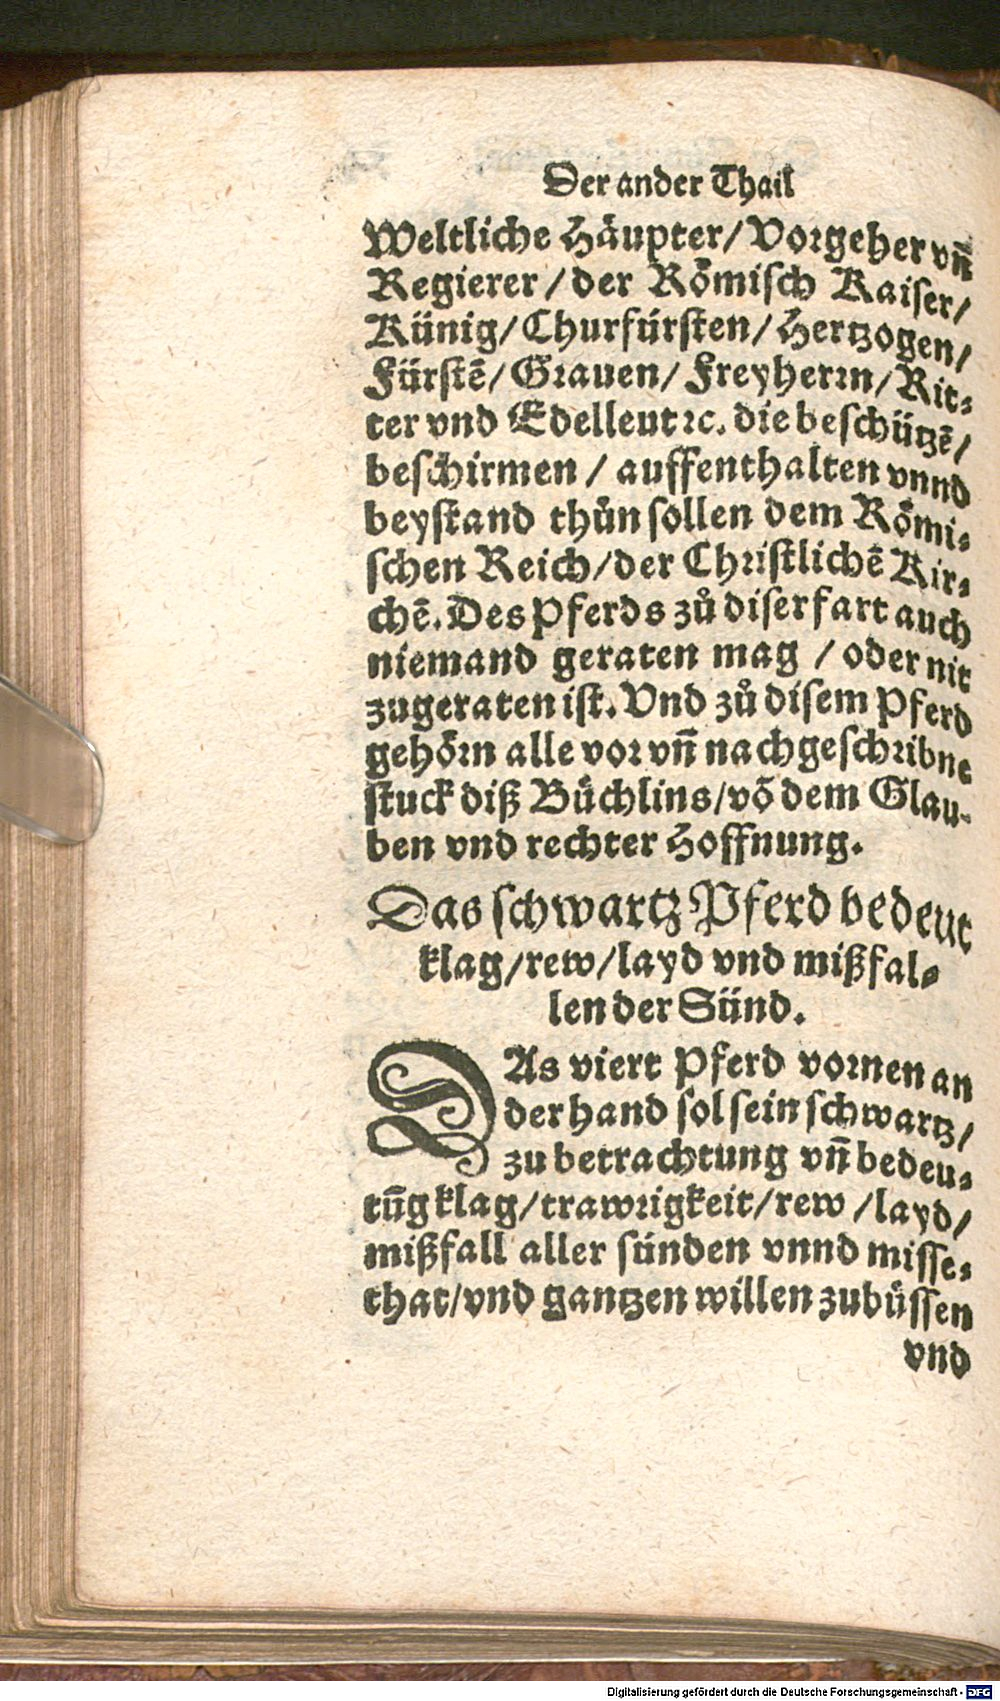 Der ander Thail
Weltliche Häupter/Vorgeher vn̄
Regierer/der Römisch Kaiser/
Künig/Churfürsten/Hertzogen/
Fürstē/Grauen/Freyherrn/Rit-
ter vnd Edelleut ꝛc. die beschützē/
beschirmen/auffenthalten vnnd
beystand thůn sollen dem Römi-
schen Reich/der Christlichē Kir-
chē. Des Pferds zů diser fart auch
niemand geraten mag/oder nit
zugeraten ist. Vnd zů disem Pferd
gehörn alle vor vn̄ nachgeschribne
stuck diß Büchlins/vō dem Glau-
ben vnd rechter Hoffnung.
Das schwartz Pferd bedeut
klag/rew/layd vnd mißfal-
len der Sünd.
DAs viert Pferd vornen an
der hand sol sein schwartz/
zu betrachtung vn̄ bedeu-
tūg klag/trawrigkeit/rew/layd/
mißfall aller sünden vnnd misse-
that/vnd gantzen willen zubüssen
vnd
Digitalisierung gefördert durch die Deutsche Forschungsgemeinschaft - DFG